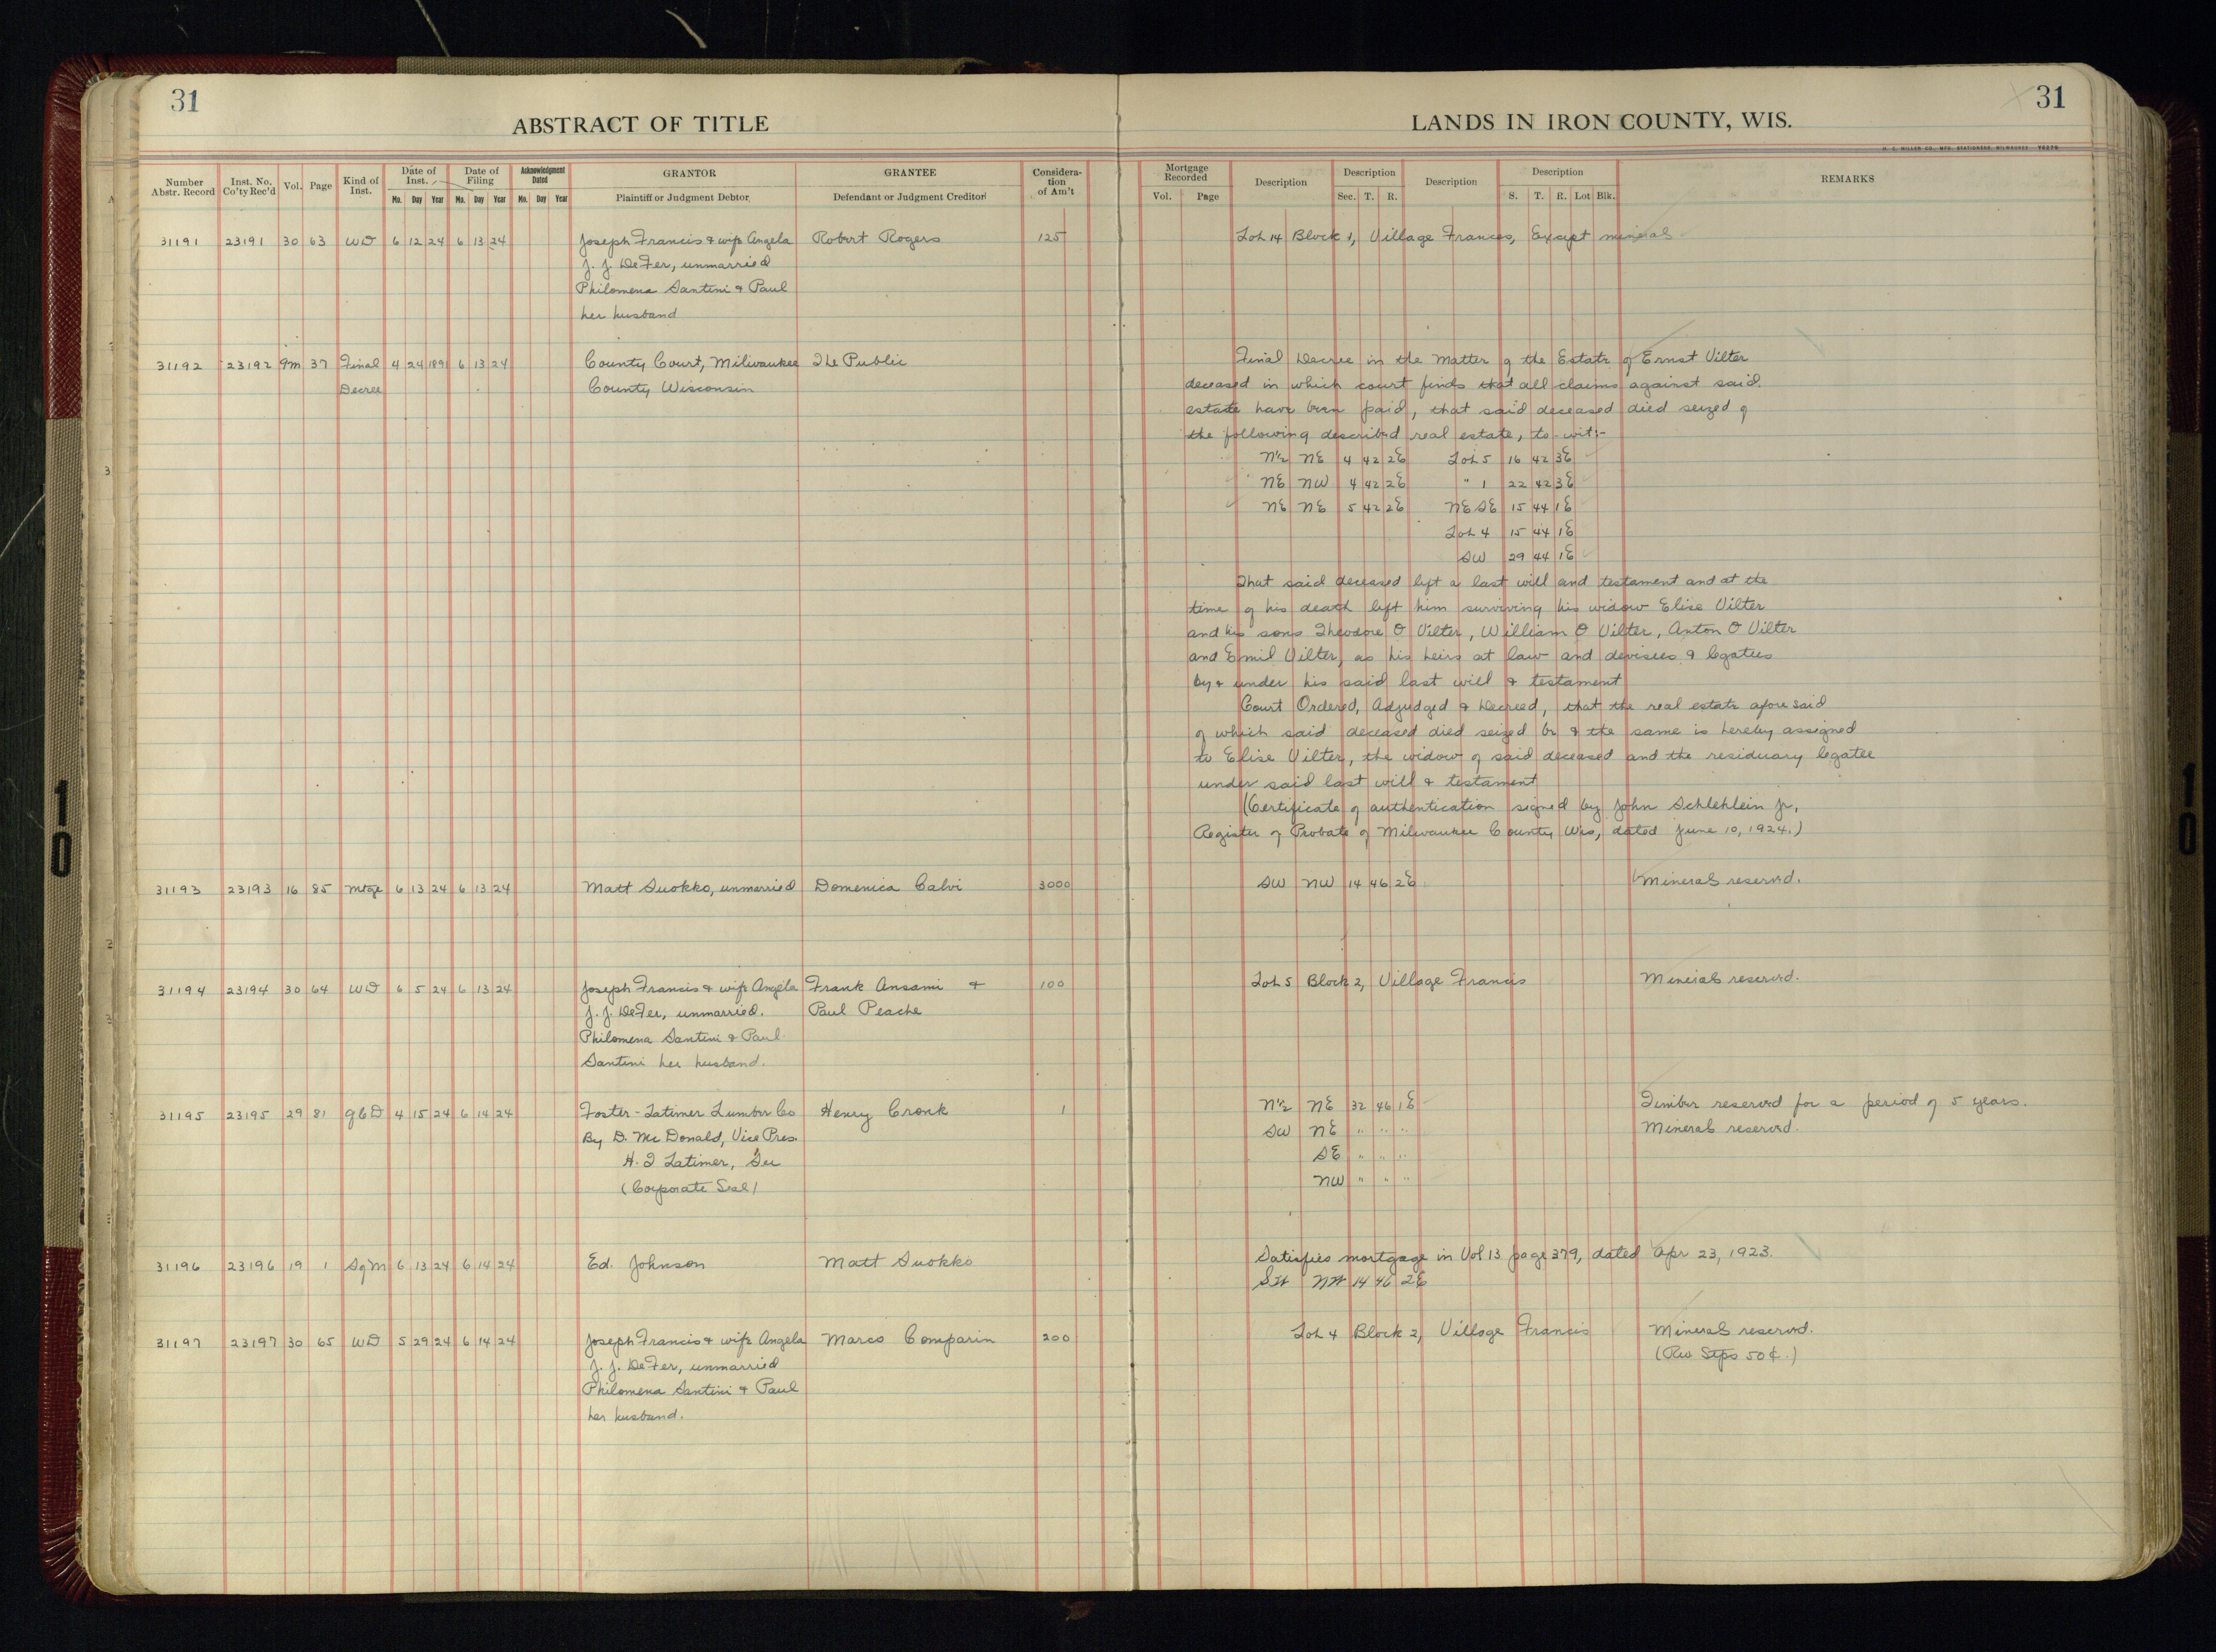 31
ABSTRACT OF TITLE
Number Abstr. Record | Inst. No. Co'ty Rec'd | Vol. | Page | Kind of Inst. | Date of Inst. Mo. Day Year | Date of Filing Mo. Day Year | Acknowledgment Dated Mo. Day Year | GRANTOR Plaintiff or Judgment Debtor | GRANTEE Defendant or Judgment Creditor | Consideration of Am't
31191 23191 30 63 WD 6 12 24 6 13 24 Joseph Francis & wife Angela Robert Rogers 125
J. J. DeFer, unmarried
Philomena Santini & Paul
her husband
31192 23192 9m 37 Final 4 24 1891 6 13 24 County Court, Milwaukee The Public
Decree County Wisconsin
31193 23193 16 85 Mtge 6 13 24 6 13 24 Matt Suokko, unmarried Domenica Calvi 3000
31194 23194 30 64 WD 6 5 24 6 13 24 Joseph Francis & wife Angela Frank Ansami & 100
J. J. DeFer, unmarried. Paul Peache
Philomena Santini & Paul
Santini her husband.
31195 23195 29 81 QCD 4 15 24 6 14 24 Foster-Latimer Lumber Co Henry Cronk 1
By D. McDonald, Vice Pres.
H. I Latimer, Sec
(Corporate Seal)
31196 23196 19 1 SqM 6 13 24 6 14 24 Ed. Johnson Matt Suokko
31197 23197 30 65 WD 5 29 24 6 14 24 Joseph Francis & wife Angela Marco Comparin 200
J. J. DeFer, unmarried
Philomena Santini & Paul
her husband.
31
LANDS IN IRON COUNTY, WIS.
Mortgage Recorded Vol. Page | Description | Description Sec. T. R. | Description | Description S. T. R. Lot Blk. | REMARKS
Lot 14 Block 1, Village Frances, Except minerals
Final Decree in the Matter of the Estate of Ernst Vilter
deceased in which court finds that all claims against said
estate have been paid, that said deceased died seized of
the following described real estate, to-wit:-
N½ NE 4 42 2E Lot 5 16 42 3E
NE NW 4 42 2E " 1 22 42 3E
NE NE 5 42 2E NE SE 15 44 1E
Lot 4 15 44 1E
SW 29 44 1E
That said deceased left a last will and testament and at the
time of his death left him surviving his widow Elise Vilter
and his sons Theodore O Vilter, William O Vilter, Anton O Vilter
and Emil Vilter, as his heirs at law and devisees & legatees
by & under his said last will & testament
Court Ordered, Adjudged & Decreed, that the real estate aforesaid
of which said deceased died seized be & the same is hereby assigned
to Elise Vilter, the widow of said deceased and the residuary legatee
under said last will & testament
(Certificate of authentication signed by John Schlehlein Jr,
Register of Probate of Milwaukee County Wis, dated June 10, 1924.)
SW NW 14 46 2E Minerals reserved.
Lot 5 Block 2, Village Francis Minerals reserved.
N½ NE 32 46 1E Timber reserved for a period of 5 years.
SW NE " " " Minerals reserved.
SE " " "
NW " " "
Satisfies mortgage in Vol 13 page 379, dated Apr 23, 1923.
SW NW 14 46 2E
Lot 4 Block 2, Village Francis Minerals reserved.
(Rev Stps 50¢.)
10
10